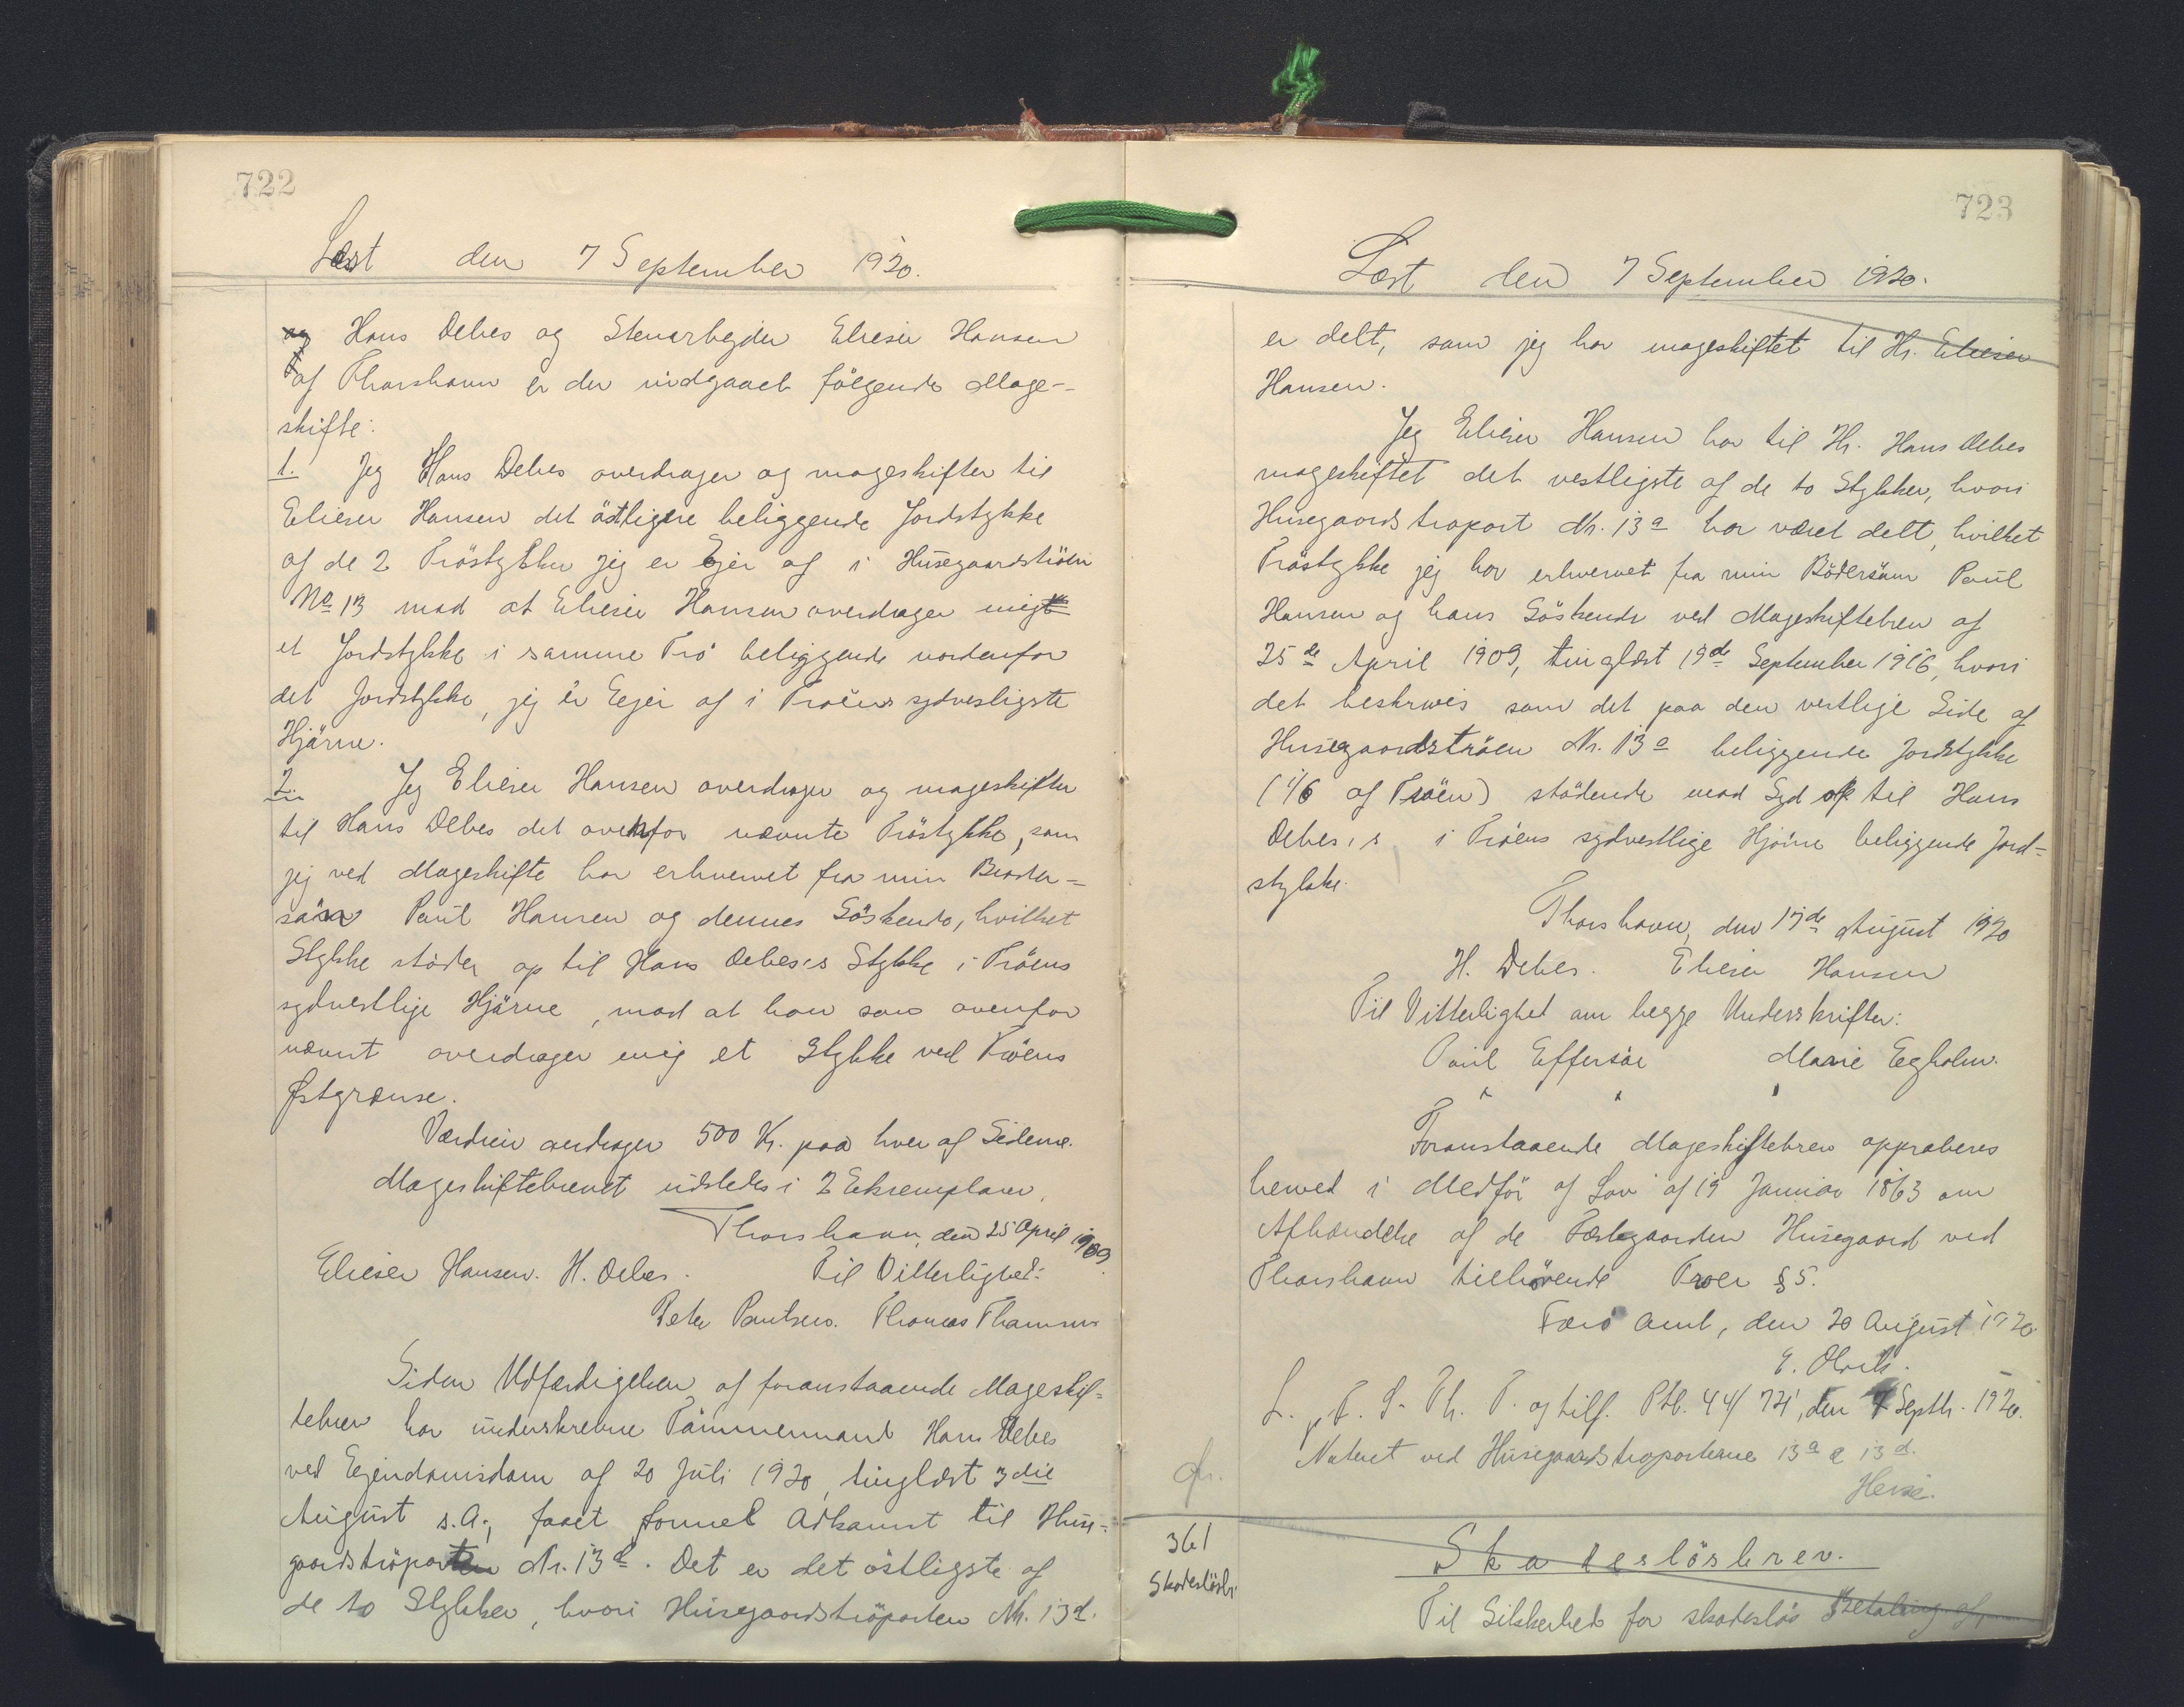 722
Læst den 7 September 1920.
og Hans Debes og Stenarbejder Elieser Hansen
af Thorshavn er der indgaaet fölgende Mage-
skifte:
1. Jeg Hans Debes overdrager og mageskifter til
Elieser Hansen det östligere beliggende Jordstykke
af de 2 Tröstykker jeg er Ejer af i Husegaardströen
No 13 mod at Elieser Hansen overdrager mig
et Jordstykke i samme Trö beliggende nordenfor
det Jordstykke, jeg er Eejer af i Tröens sydvesligste
Hjörne.
2. Jeg Elieser Hansen overdrager og mageskifter
til Hans Debes det ovenfor nævnte Tröstykke, som
jeg ved Mageskifte har erhvervet fra min Broder-
sön Paul Hansen og dennes Söskende, hvilket
Stykke stöder op til Hans Debes's Stykke i Tröens
sydvestlige Hjörne, mod at han som ovenfor
nævnt overdrager mig et Stykke ved Tröens
Østgrænse.
Værdien andrager 500 Kr. paa hver af Siderne.
Mageskiftebrevet udstedes i 2 Eksemplarer.
Thorshavn, den 25 April 1909.
Elieser Hansen. H. Debes. Til Vitterlighed:
Peter Poulsen. Thomas Thomsen
Siden Udfærdigelsen af foranstaaende Mageskif-
tebrev har underskrevne Tömmermand Hans Debes
ved Ejendomsdom af 20 Juli 1920, tinglæst 3die
August s.A., faaet formel Adkomst til Huse-
gaardströparten Nr. 13d. Det er det östligste af
de to Stykker, hvori Husegaardströparten Nr. 13d.
723
Læst den 7 September 1920.
er delt, som jeg har mageskiftet til Hr. Elieser
Hansen.
Jeg Elieser Hansen har til Hr. Hans Debes
mageskiftet det vestligste af de to Stykker, hvori
Husegaardströpart Nr. 13a har været delt, hvilket
Tröstykke jeg har erhvervet fra min Bödersön Paul
Hansen og hans Söskende ved Mageskiftebrev af
25de April 1909, tinglæst 19de September 1916, hvori
det beskrives som det paa den vestlige Side af
Husegaardströen Nr. 13a beliggende Jordstykke
(1/6 af Tröen) stödende mod Syd op til Hans
Debes's i Tröens sydvestlige Hjörne beliggende Jord-
stykke.
Thorshavn, den 17de August 1920
H. Debes. Elieser Hansen
Til Vitterlighet om begge Underskrifter:
Paul Effersöe Marie Eegholm.
" " "
Foranstaaende Mageskiftebrev approberes
herved i Medför af Lov af 19 Januar 1863 om
Afhændelse af de Fæstegaarden Husegaard ved
Thorshavn tilhörende Tröer § 5.
Færö Amt, den 20 August 1920.
L. p. F. S. Th. P. og tilf. Ptb. 44/ 74, den 7 Septb. 1920.
Noteret ved Husegaardströparterne 13a & 13d.
361
Skadeslösbr.
Skadeslösbrev.
Til Sikkerhed for skadeslös Betaling af